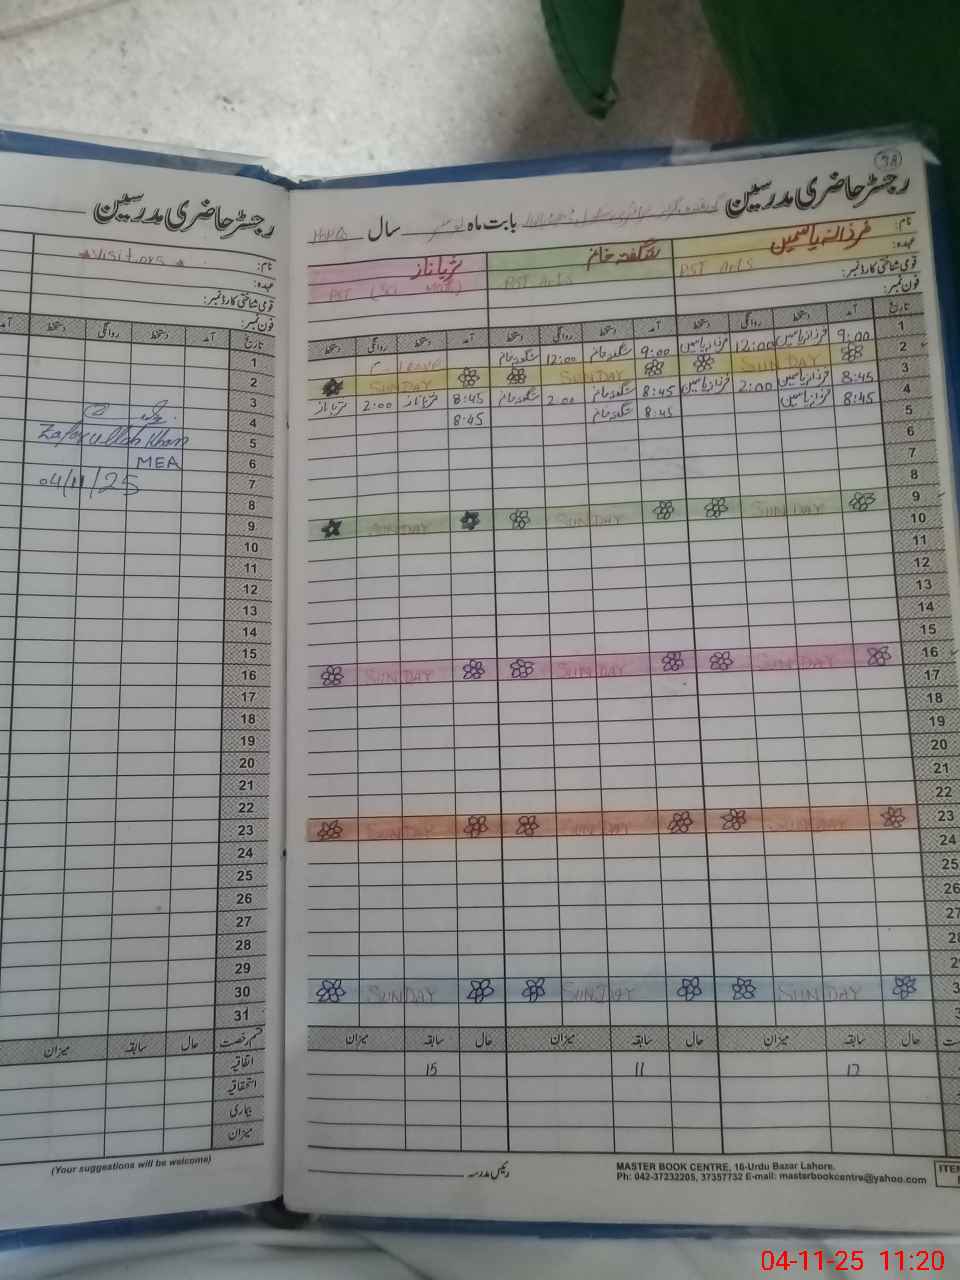 رجسٹر حاضری مدرسین
نام:
* Visitors *
عہدہ:
قومی شناختی کارڈ نمبر:
فون نمبر:
تاریخ آمد دستخط روانگی دستخط آمد
1
2
3
4
Zafarullah Khan
5
MEA
6
04/11/25
7
8
9
10
11
12
13
14
15
16
17
18
19
20
21
22
23
24
25
26
27
28
29
30
31
قسم رخصت حال سابقہ میزان
اتفاقیہ
استحقاقیہ
بیماری
میزان
(Your suggestions will be welcome)
38
رجسٹر حاضری مدرسین
بابت ماہ نومبر سال
نام: فرزانہ یاسمین شگفتہ خانم ثریا ناز
عہدہ: PST Arts PST Arts PST (Sci Math)
قومی شناختی کارڈ نمبر:
فون نمبر:
تاریخ آمد دستخط روانگی دستخط آمد دستخط روانگی دستخط آمد دستخط روانگی دستخط
1 9:00 فرزانہ یاسمین 12:00 فرزانہ یاسمین 9:00 شگفتہ خانم 12:00 شگفتہ خانم C-Leave
2 SUNDAY SUNDAY SUNDAY
3 8:45 فرزانہ یاسمین 2:00 فرزانہ یاسمین 8:45 شگفتہ خانم 2:00 شگفتہ خانم 8:45 ثریا ناز 2:00 ثریا ناز
4 8:45 فرزانہ یاسمین 8:45 شگفتہ خانم 8:45
5
6
7
8
9 SUNDAY SUNDAY SUNDAY
10
11
12
13
14
15
16 SUNDAY SUNDAY SUNDAY
17
18
19
20
21
22
23 SUNDAY SUNDAY SUNDAY
24
25
26
27
28
SUNDAY SUNDAY SUNDAY
حال سابقہ میزان حال سابقہ میزان حال سابقہ میزان
17 11 15
رئیس مدرسہ
MASTER BOOK CENTRE, 16-Urdu Bazar Lahore.
Ph: 042-37232205, 37357732 E-mail: masterbookcentre@yahoo.com
ITE
04-11-25 11:20